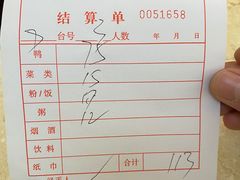 结算单 0051658
8 台号 3 人数 年 月 日
鸭 75
菜类 15
粉/饭
粥 12
烟酒
饮料
纸巾 1 合计 113